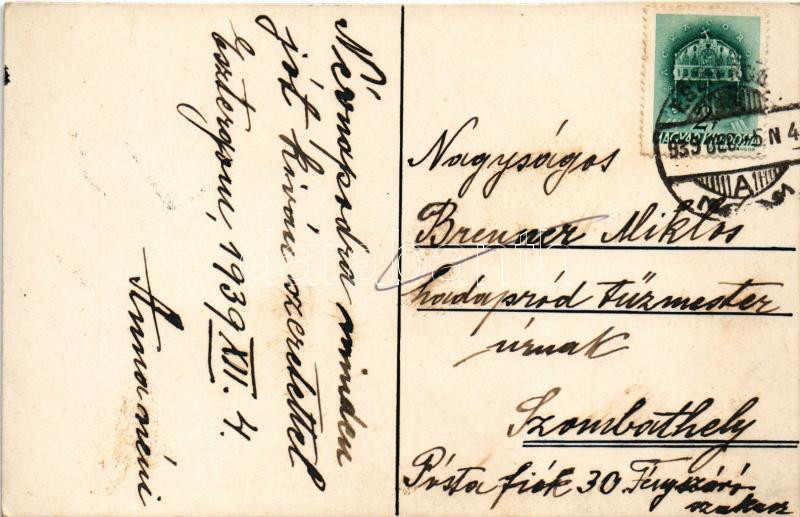 Névnapodra minden
jót kiván szeretettel
Esztergom, 1939 XII. 4.
Anna néni
MAGYAR KIR. POSTA
939 DEC. 5 N 4
A
Nagyságos
Brenner Miklós
hadapród tűzmester
úrnak
Szombathely
Posta fiók 30 Fényszóró
szakasz